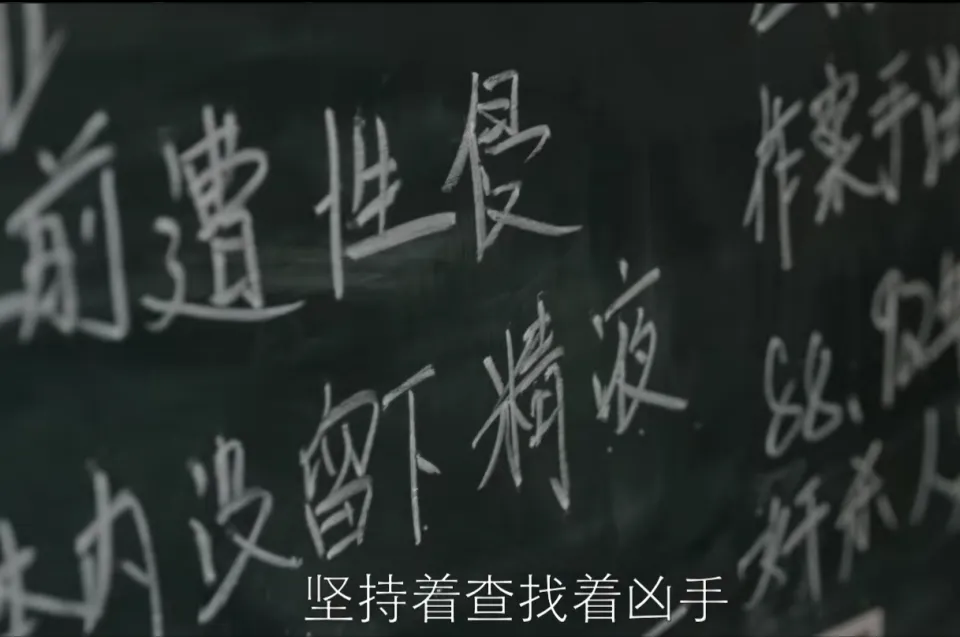 前遭性侵
体内没留下精液
作案手
88、92年
奸杀人
坚持着查找着凶手